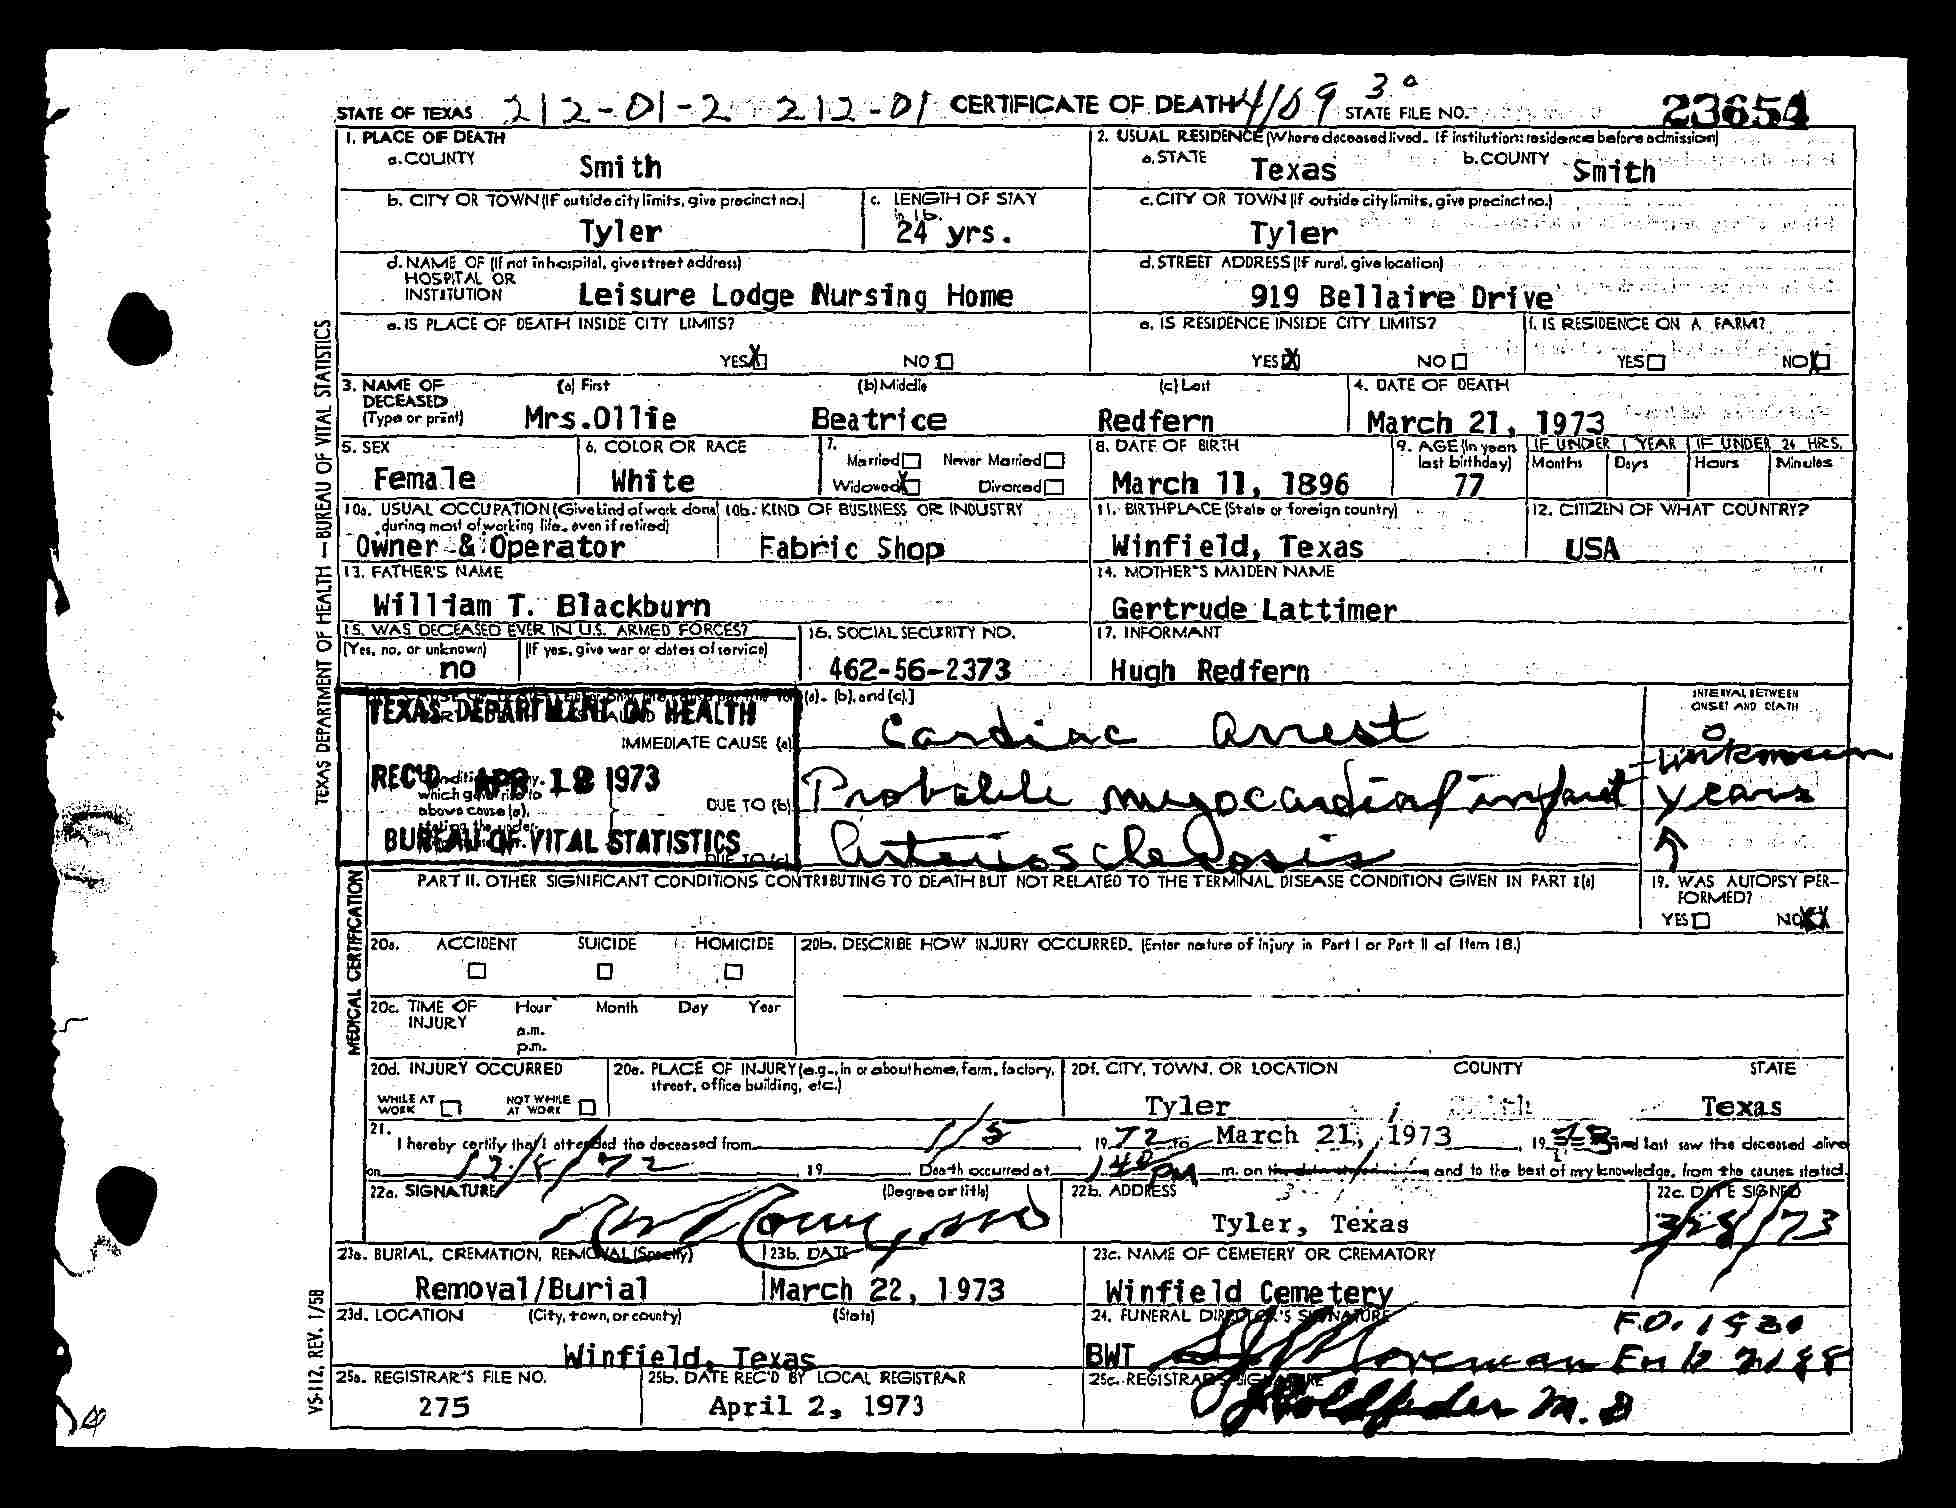 STATE OF TEXAS 212-01-2 212-01 CERTIFICATE OF DEATH 4109 30 STATE FILE NO. 23654
1. PLACE OF DEATH
a. COUNTY Smith
2. USUAL RESIDENCE (Where deceased lived. If institution: residence before admission)
a. STATE Texas b. COUNTY Smith
b. CITY OR TOWN (If outside city limits, give precinct no.) Tyler
c. LENGTH OF STAY in 1b. 24 yrs.
c. CITY OR TOWN (If outside city limits, give precinct no.) Tyler
d. NAME OF (If not in hospital, give street address) HOSPITAL OR INSTITUTION Leisure Lodge Nursing Home
d. STREET ADDRESS (If rural, give location) 919 Bellaire Drive
e. IS PLACE OF DEATH INSIDE CITY LIMITS? YES X NO
e. IS RESIDENCE INSIDE CITY LIMITS? YES X NO
f. IS RESIDENCE ON A FARM? YES NO X
3. NAME OF DECEASED (Type or print) (a) First Mrs.Ollie (b) Middle Beatrice (c) Last Redfern
4. DATE OF DEATH March 21, 1973
5. SEX Female
6. COLOR OR RACE White
7. Married Never Married Widowed X Divorced
8. DATE OF BIRTH March 11, 1896
9. AGE (In years last birthday) 77
IF UNDER 1 YEAR Months Days
IF UNDER 24 HRS. Hours Minutes
10a. USUAL OCCUPATION (Give kind of work done during most of working life, even if retired) Owner & Operator
10b. KIND OF BUSINESS OR INDUSTRY Fabric Shop
11. BIRTHPLACE (State or foreign country) Winfield, Texas
12. CITIZEN OF WHAT COUNTRY? USA
13. FATHER'S NAME William T. Blackburn
14. MOTHER'S MAIDEN NAME Gertrude Lattimer
15. WAS DECEASED EVER IN U.S. ARMED FORCES? (Yes, no, or unknown) no (If yes, give war or dates of service)
16. SOCIAL SECURITY NO. 462-56-2373
17. INFORMANT Hugh Redfern
(a), (b), and (c).]
INTERVAL BETWEEN ONSET AND DEATH
TEXAS DEPARTMENT OF HEALTH
REC'D APR 18 1973
BUREAU OF VITAL STATISTICS
IMMEDIATE CAUSE (a) Cardiac Arrest 0
which gave rise to above cause (a), stating the under-
DUE TO (b) Probable myocardial infarct unknown
DUE TO (c) Arteriosclerosis years
PART II. OTHER SIGNIFICANT CONDITIONS CONTRIBUTING TO DEATH BUT NOT RELATED TO THE TERMINAL DISEASE CONDITION GIVEN IN PART I(a)
19. WAS AUTOPSY PERFORMED? YES NO X
20a. ACCIDENT SUICIDE HOMICIDE
20b. DESCRIBE HOW INJURY OCCURRED. (Enter nature of injury in Part I or Part II of Item 18.)
20c. TIME OF INJURY Hour a.m. p.m. Month Day Year
20d. INJURY OCCURRED WHILE AT WORK NOT WHILE AT WORK
20e. PLACE OF INJURY (e.g., in or about home, farm, factory, street, office building, etc.)
20f. CITY, TOWN, OR LOCATION Tyler COUNTY Smith STATE Texas
21. I hereby certify that I attended the deceased from 1/5 1972 to March 21, 1973, 1973 and last saw the deceased alive
on 12/8/72, 19 Death occurred at 140 PM m. on and to the best of my knowledge, from the causes stated.
22a. SIGNATURE (Degree or title) MD
22b. ADDRESS Tyler, Texas
22c. DATE SIGNED 3/28/73
23a. BURIAL, CREMATION, REMOVAL (Specify) Removal/Burial
23b. DATE March 22, 1973
23c. NAME OF CEMETERY OR CREMATORY Winfield Cemetery
23d. LOCATION (City, town, or county) (State) Winfield, Texas
24. FUNERAL DIRECTOR'S SIGNATURE BWT
25a. REGISTRAR'S FILE NO. 275
25b. DATE REC'D BY LOCAL REGISTRAR April 2, 1973
25c. REGISTRAR'S SIGNATURE M. D
TEXAS DEPARTMENT OF HEALTH — BUREAU OF VITAL STATISTICS
MEDICAL CERTIFICATION
VS-112, REV. 1/58